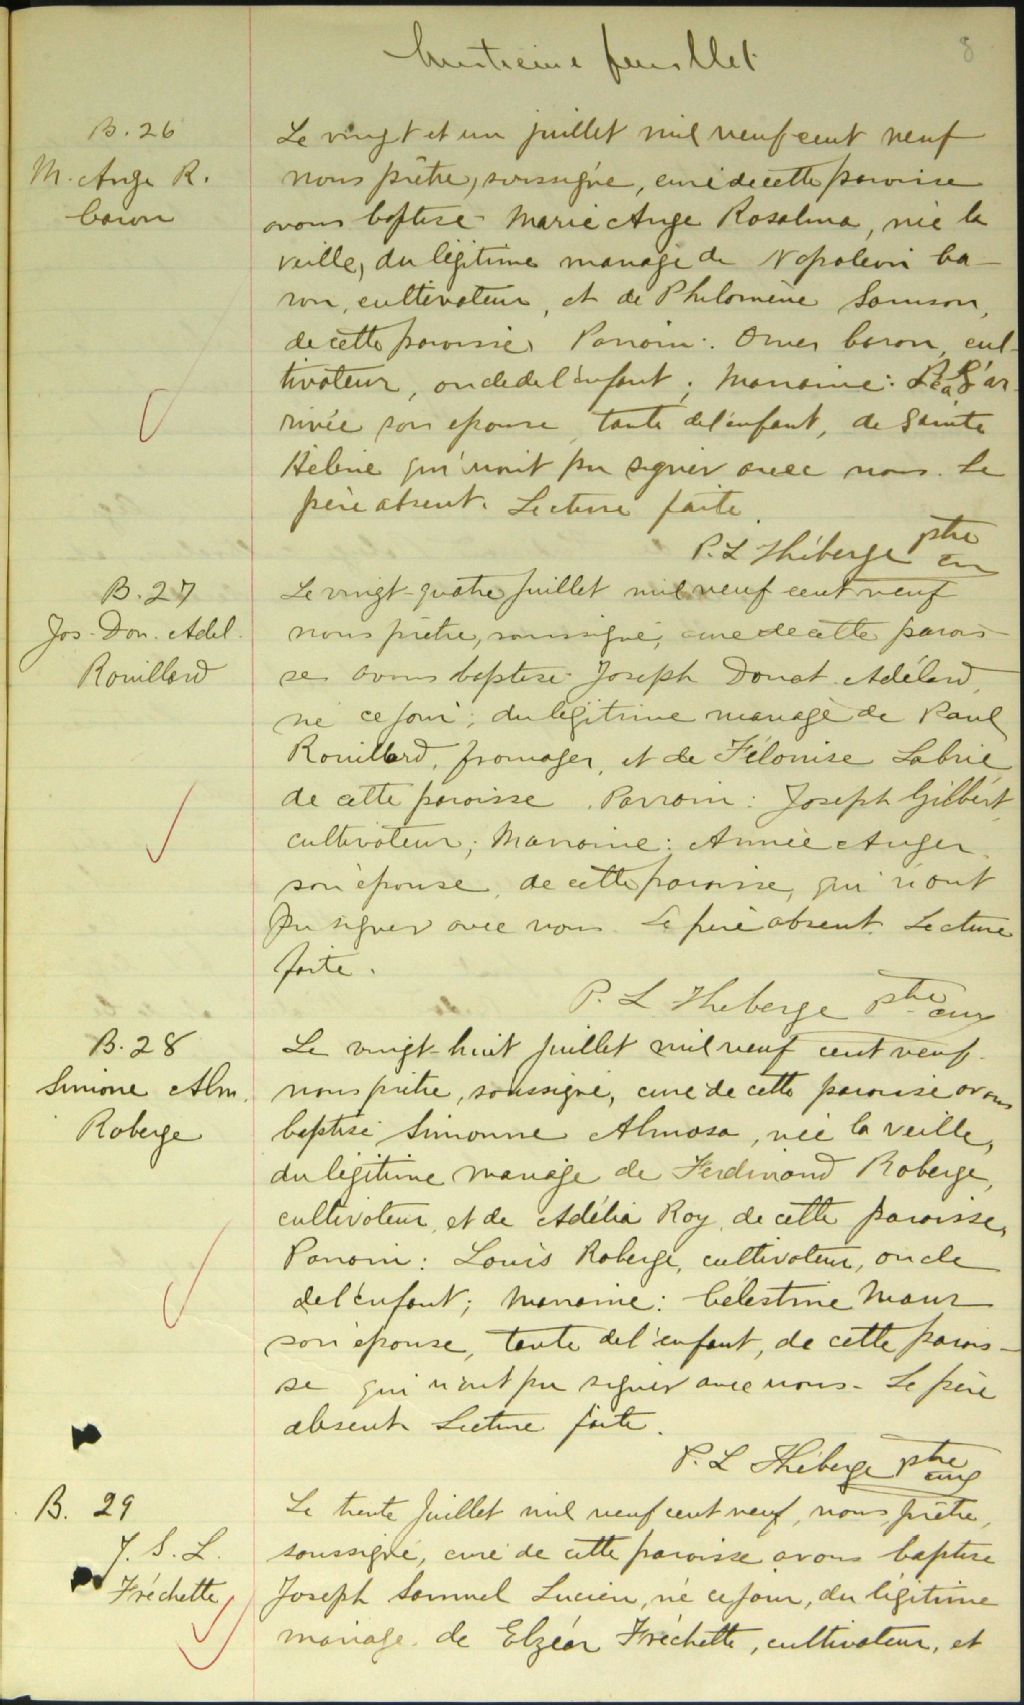 huitième feuillet
8
B. 26
M. Ange R.
Caron
Le vingt et un juillet mil neuf cent neuf
nous prêtre, soussigné, curé de cette paroisse
avons baptisé Marie Ange Rosalma, née la
veille, du légitime mariage de Napoléon Ca-
ron, cultivateur, et de Philomène Samson,
de cette paroisse. Parrain: Omer Caron, cul-
tivateur, oncle de l'enfant; Marraine: Léa
rivée son épouse, tante de l'enfant, de Sainte
Hélène qui n'ont pu signer avec nous. Le
père absent. Lecture faite.
P. L Théberge ptre
cur
B. 27
Jos. Don. Adel.
Rouillard
Le vingt-quatre juillet mil neuf cent neuf
nous prêtre, soussigné, curé de cette parois-
se avons baptisé Joseph Donat Adélard,
né ce jour, du légitime mariage de Paul
Rouillard, fromager, et de Félonise Labrie
de cette paroisse. Parrain: Joseph Gilbert,
cultivateur; Marraine: Annie Auger
son épouse, de cette paroisse, qui n'ont
pu signer avec nous. Le père absent. Lecture
faite.
P. L Théberge ptre cur
B. 28
Simone Alm.
Roberge
Le vingt-huit juillet mil neuf cent neuf
nous prêtre, soussigné, curé de cette paroisse avons
baptisé Simonne Almosa, née la veille,
du légitime mariage de Ferdinand Roberge,
cultivateur, et de Adélia Roy, de cette paroisse,
Parrain: Louis Roberge, cultivateur, oncle
de l'enfant; Marraine: Célestine Maur
son épouse, tante de l'enfant, de cette parois-
se qui n'ont pu signer avec nous. Le père
absent. Lecture faite.
P. L Théberge ptre
curé
B. 29
J. S. L.
Fréchette
Le trente juillet mil neuf cent neuf, nous, prêtre,
soussigné, curé de cette paroisse avons baptisé
Joseph Samuel Lucien, né ce jour, du légitime
mariage de Elzéar Fréchette, cultivateur, et